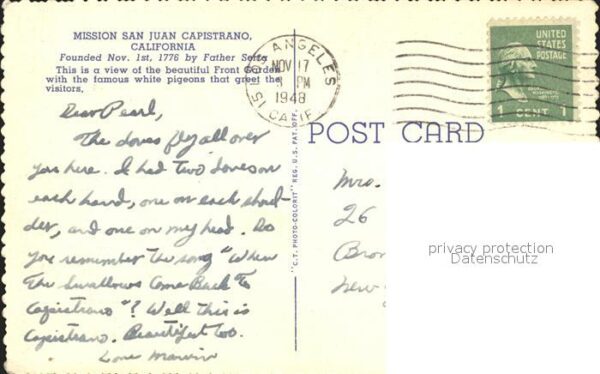 MISSION SAN JUAN CAPISTRANO,
CALIFORNIA
Founded Nov. 1st, 1776 by Father Serra
This is a view of the beautiful Front Garden
with the famous white pigeons that greet the
visitors.
Dear Pearl,
The doves fly all over
you here. I had two doves on
each hand, one on each shoul-
der, and one on my head. Do
you remember the song "When
The Swallows Come Back To
Capistrano"? Well this is
Capistrano. Beautiful too.
Love Marvin
"C.T. PHOTO-COLORIT" REG. U.S. PAT. OFF.
LOS ANGELES
NOV 17
PM
1948
15 CALIF.
UNITED
STATES
POSTAGE
1 CENT 1
POST CARD
Mrs.
26
Bron
New
privacy protection
Datenschutz